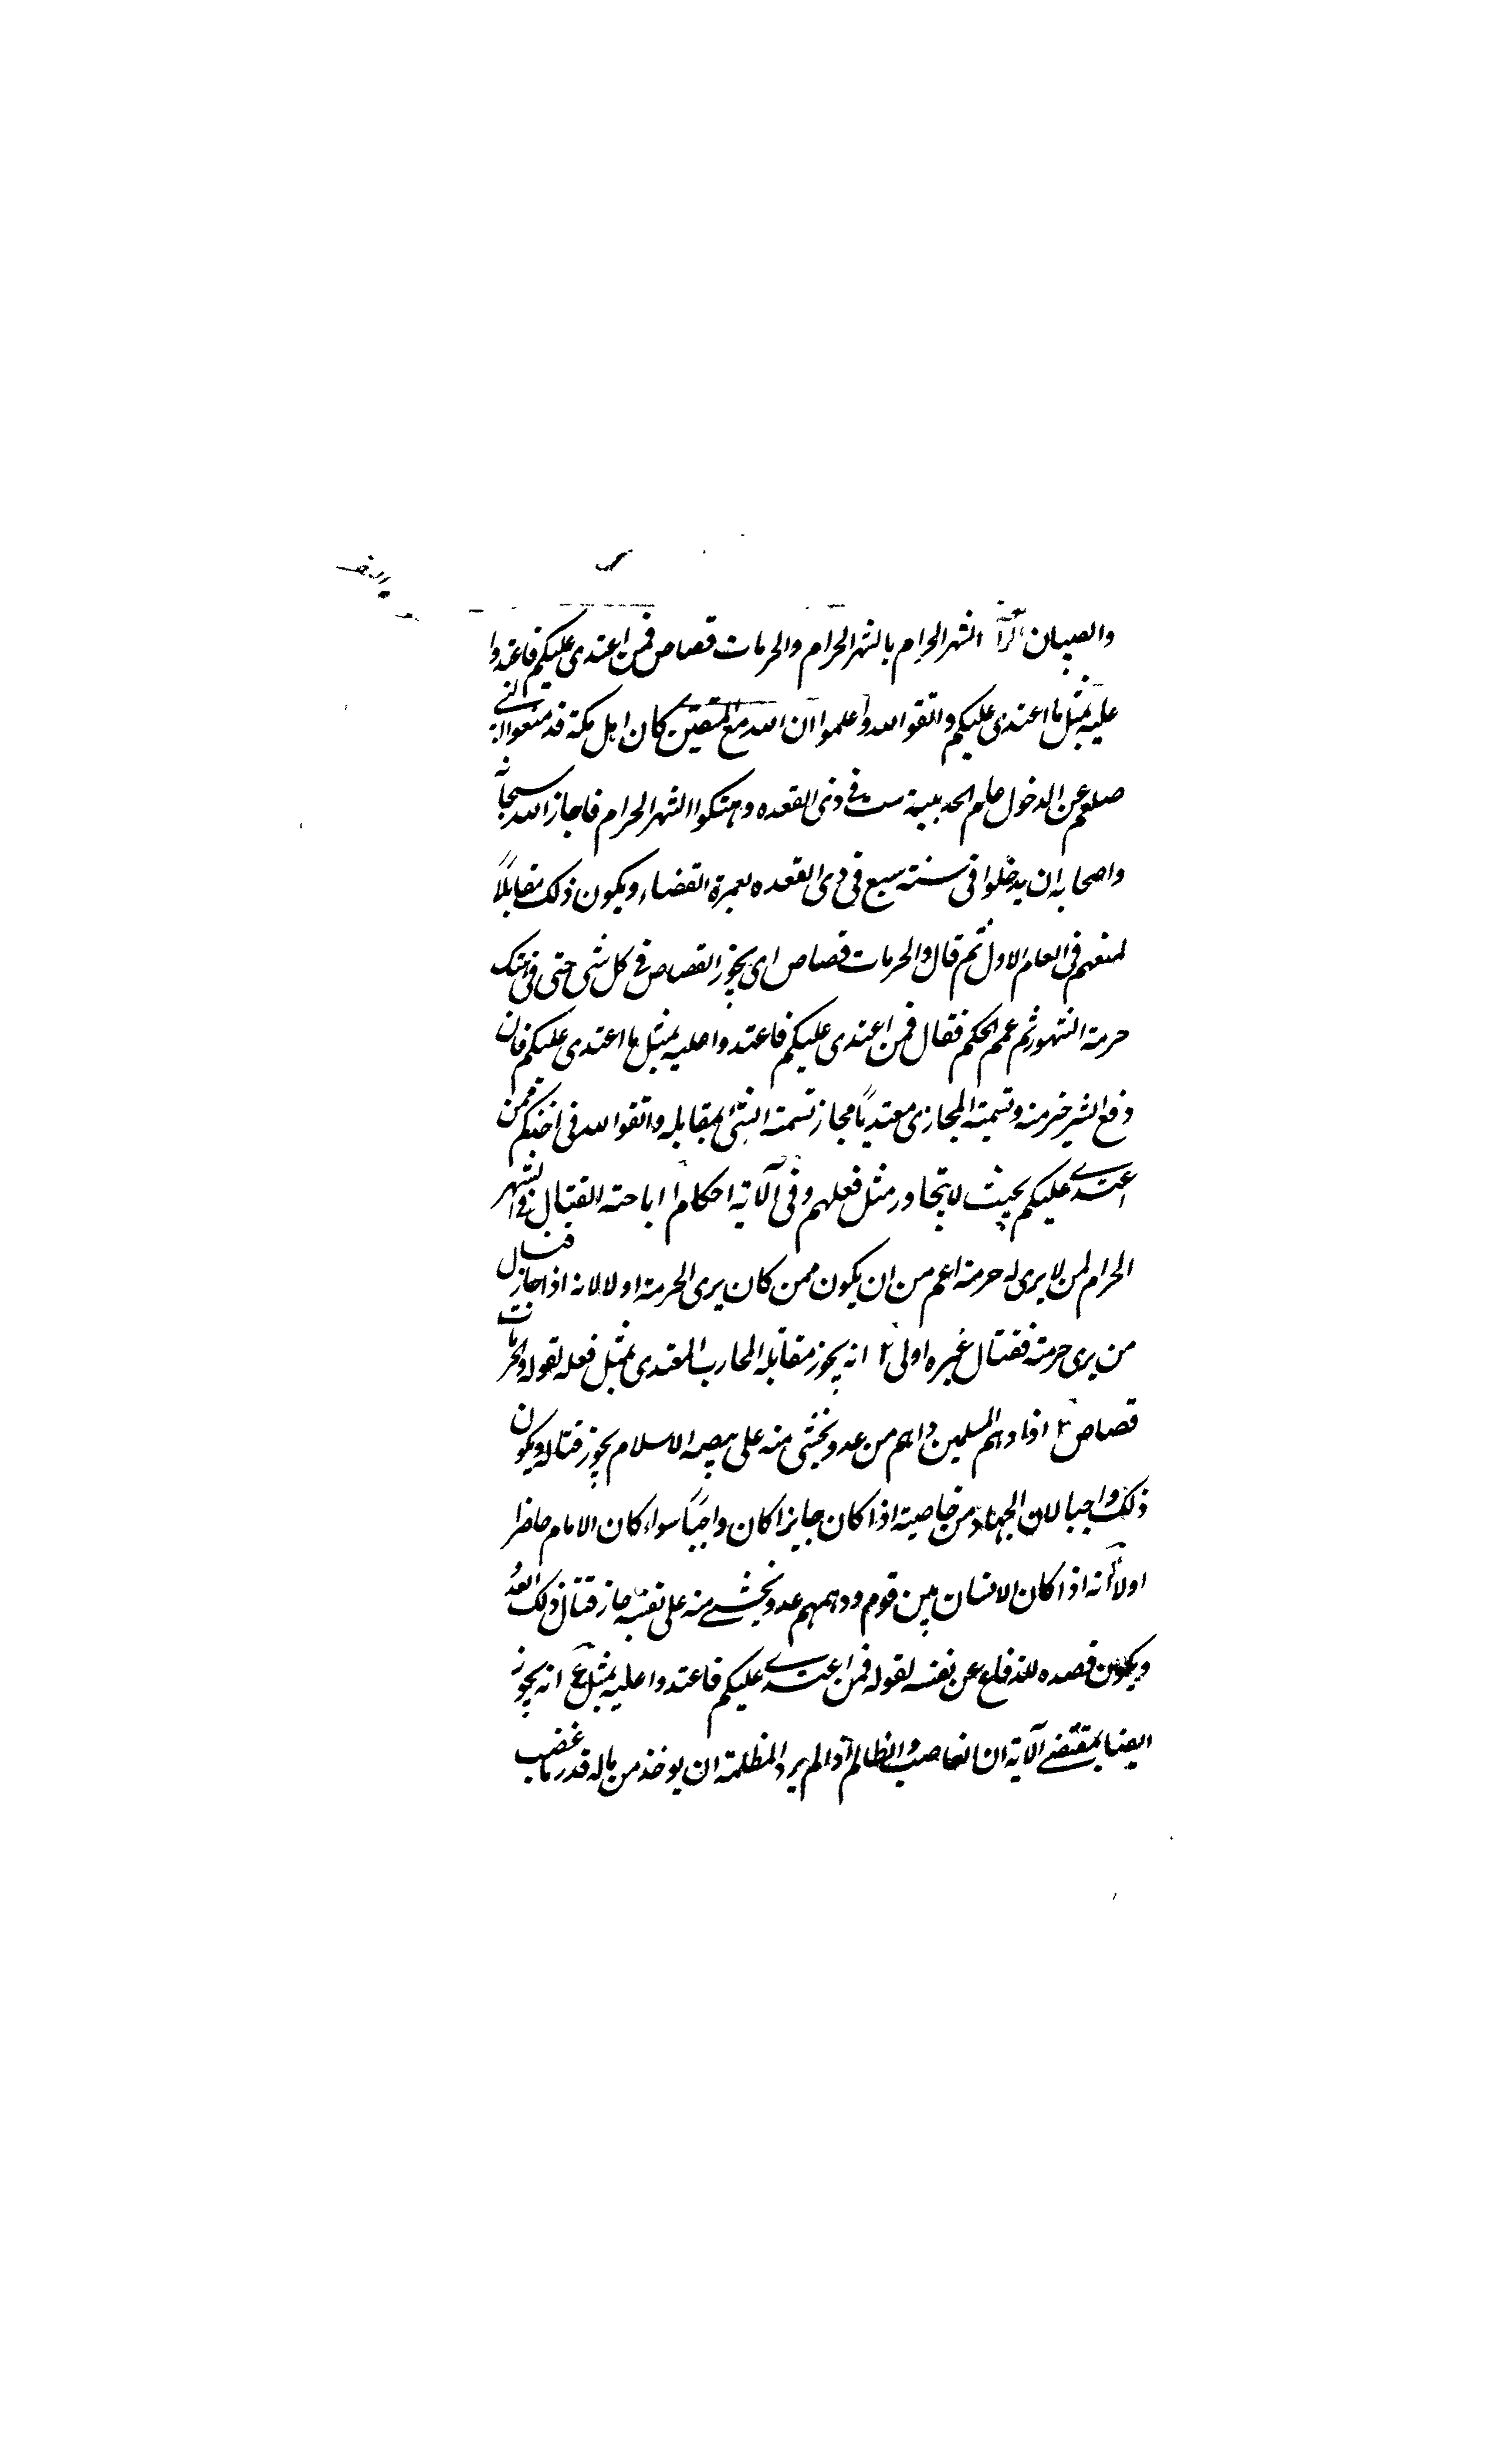 والصبيان الرابعة الشهر الحرام بالشهر الحرام والحرمات قصاص فمن اعتدى عليكم فاعتدوا
عليه بمثل ما اعتدى عليكم واتقوا الله واعلموا ان الله مع المتقين كان اهل مكة قد منعوا النبي
صلعم عن الدخول عام الحديبية ست في ذى القعده وهتكوا الشهر الحرام فاجاز الله سبحانه
واصحابه ان يدخلوا فى سنة سبع فى ذى القعده لعمرة القضاء ويكون ذلك مقابلاً
لمنعهم فى العام الاول ثم قال والحرمات قصاص اى يجوز القصاص في كل شى حتى فى هتك
حرمة الشهور ثم عمم الحكم فقال فمن اعتدى عليكم فاعتدوا عليه بمثل ما اعتدى عليكم فان
دفع الشر خير منه وتسمية المجازى معتدياً مجاز تسمية الشئ بمقابله واتقوا الله فى اخذكم ممن
اعتدى عليكم بحيث لا يتجاوز مثل فعلهم وفى الآية احكام ا اباحة القتال فى الشهر
الحرام لمن لا يرى له حرمة اعم من ان يكون ممن كان يرى الحرمة او لا لانه اذا جاز قتال
من يرى حرمته فقتال غيره اولى ٢ انه يجوز مقاتلة المحارب المعتدى بمثل فعله لقوله والحرمات
قصاص ٣ اذا دهم المسلمين داهم من عدو يخشى منه على بيضة الاسلام يجوز قتاله ويكون
ذلك واجبا لان الجهاد من خاصيته اذا كان جايزا كان واجباً سواء كان الامام حاضرا
اولا انه اذا كان الانسان بين قوم ودهمهم عدو يخشى منه على نفسه جاز قتال ذلك العدو
ويكون قصده للدفاع عن نفسه لقوله فمن اعتدى عليكم فاعتدوا عليه بمثل انه يجوز
ايضا بمقتضى الآية ان الغاصب والظالم اذا لم يرد المظلمة ان يوخذ من ماله قدر ما غصب